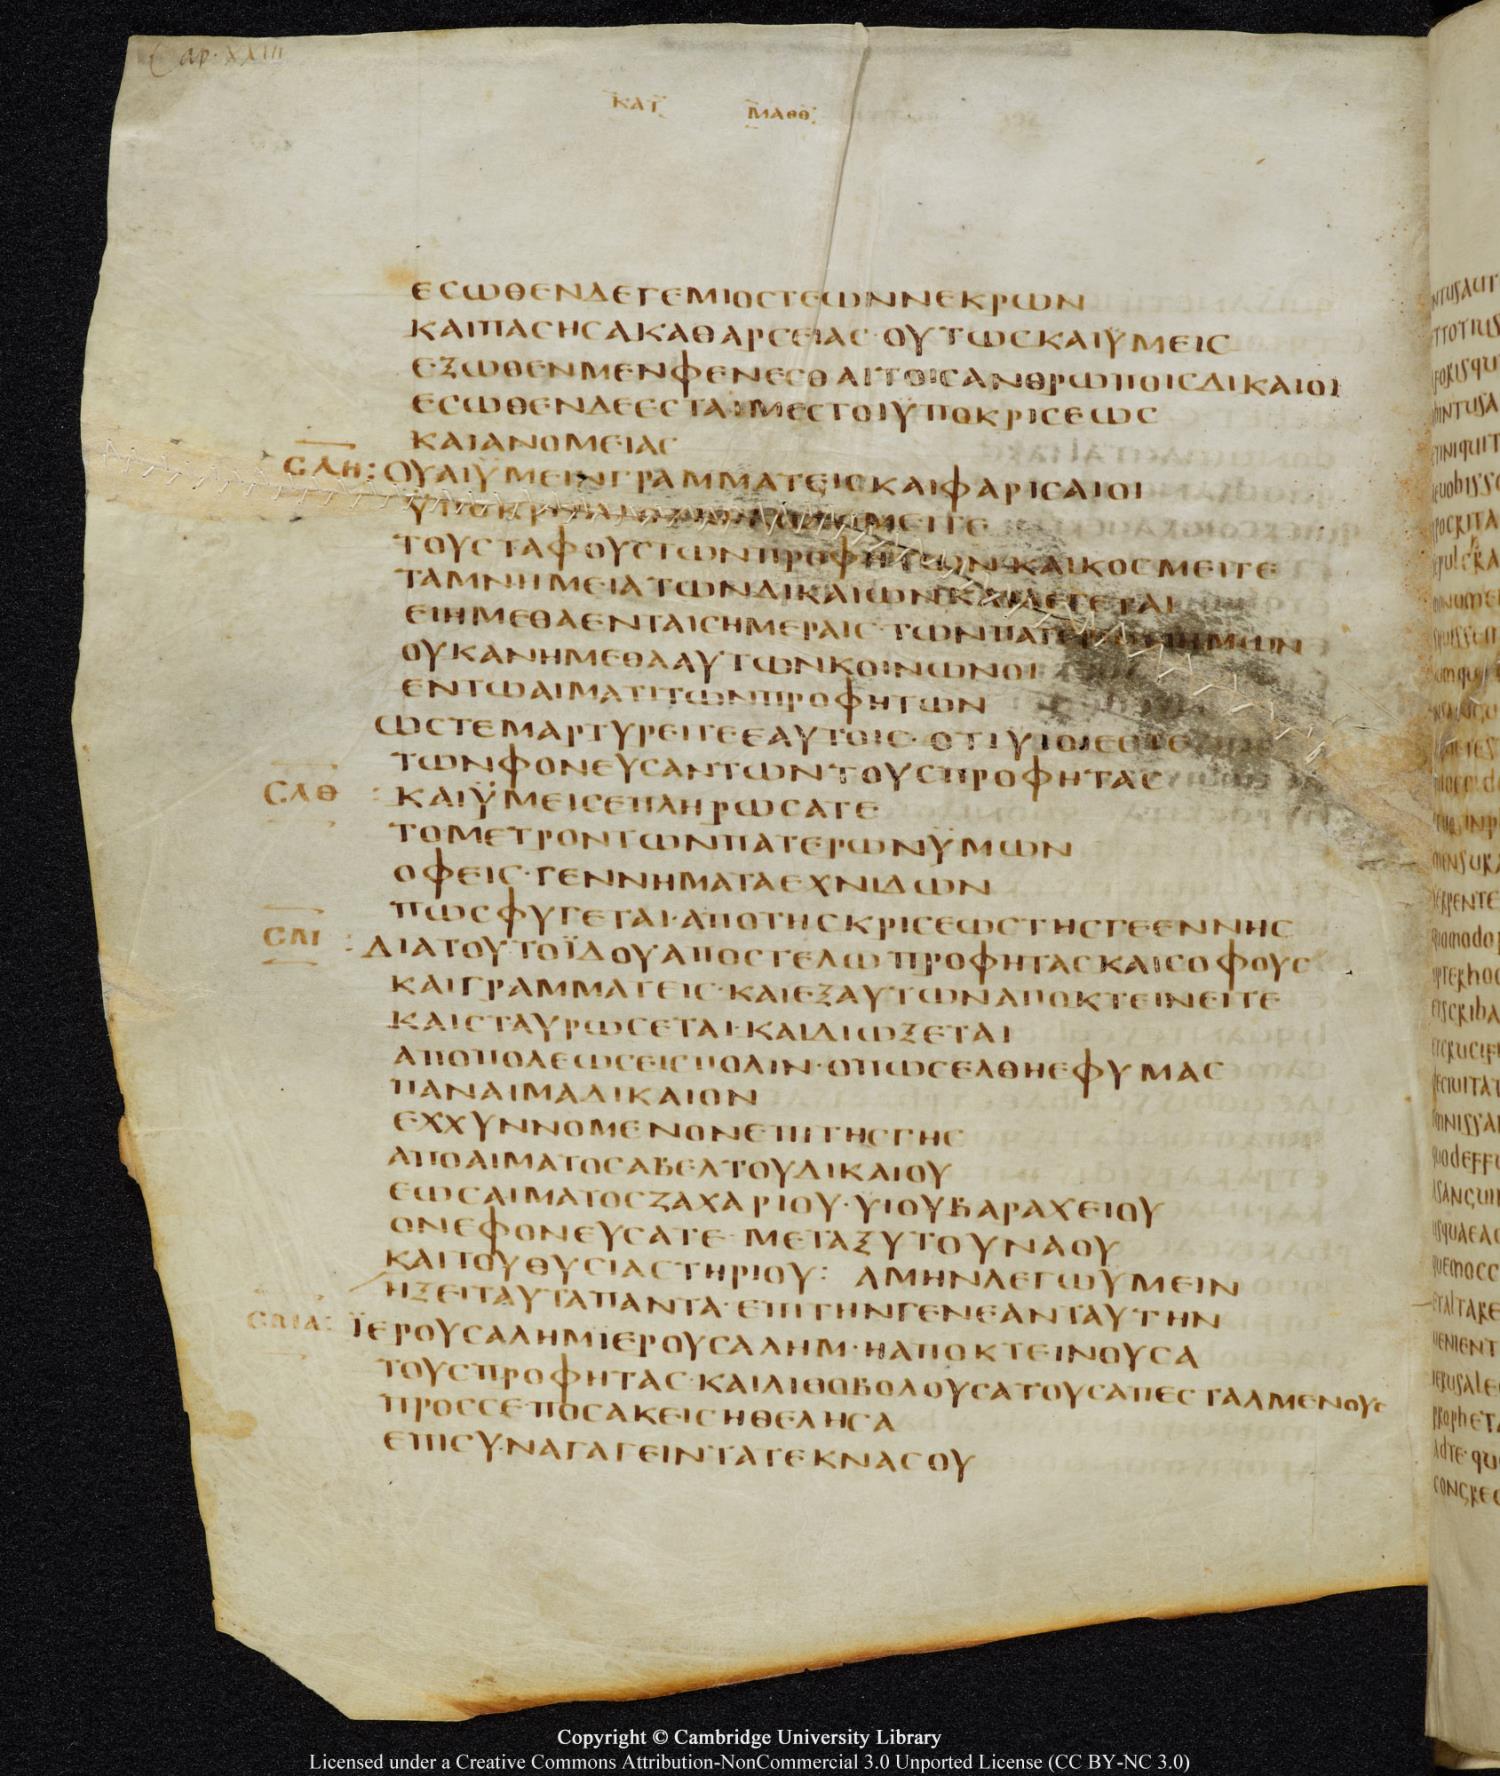 Cap. XXIII
ΚΑΤ ΜΑΘΘ
ΕΣΩΘΕΝΔΕΓΕΜΙΟΣΤΕΩΝΝΕΚΡΩΝ
ΚΑΙΠΑΣΗΣΑΚΑΘΑΡΣΕΙΑΣ·ΟΥΤΩΣΚΑΙΫΜΕΙΣ
ΕΞΩΘΕΝΜΕΝΦΕΝΕΣΘΑΙΤΟΙΣΑΝΘΡΩΠΟΙΣΔΙΚΑΙΟΙ
ΕΣΩΘΕΝΔΕΕΣΤΑΙΜΕΣΤΟΙΫΠΟΚΡΙΣΕΩΣ
ΚΑΙΑΝΟΜΕΙΑΣ
ΣΛΗ: ΟΥΑΙΫΜΕΙΝΓΡΑΜΜΑΤΕΙΣΚΑΙΦΑΡΙΣΑΙΟΙ
ΤΟΥΣΤΑΦΟΥΣΤΩΝΠΡΟΦΗΤΩΝ·ΚΑΙΚΟΣΜΕΙΤΕ
ΤΑΜΝΗΜΕΙΑΤΩΝΔΙΚΑΙΩΝΚΑΙΛΕΓΕΤΑΙ
ΕΙΗΜΕΘΑΕΝΤΑΙΣΗΜΕΡΑΙΣ·ΤΩΝΠΑΤΕΡΩΝΗΜΩΝ
ΟΥΚΑΝΗΜΕΘΑΑΥΤΩΝΚΟΙΝΩΝΟΙ
ΕΝΤΩΑΙΜΑΤΙΤΩΝΠΡΟΦΗΤΩΝ
ΩΣΤΕΜΑΡΤΥΡΕΙΤΕΕΑΥΤΟΙΣ·ΟΤΙΥΙΟΙΕΣΤΕ
ΤΩΝΦΟΝΕΥΣΑΝΤΩΝΤΟΥΣΠΡΟΦΗΤΑΣ
ΣΛΘ : ΚΑΙΫΜΕΙΣΕΠΛΗΡΩΣΑΤΕ
ΤΟΜΕΤΡΟΝΤΩΝΠΑΤΕΡΩΝΫΜΩΝ
ΟΦΕΙΣ·ΓΕΝΝΗΜΑΤΑΕΧΝΙΔΩΝ
ΠΩΣΦΥΓΕΤΑΙ·ΑΠΟΤΗΣΚΡΙΣΕΩΣΤΗΣΓΕΕΝΝΗΣ
ΣΜ : ΔΙΑΤΟΥΤΟΪΔΟΥΑΠΟΣΤΕΛΩΠΡΟΦΗΤΑΣΚΑΙΣΟΦΟΥΣ
ΚΑΙΓΡΑΜΜΑΤΕΙΣ·ΚΑΙΕΞΑΥΤΩΝΑΠΟΚΤΕΙΝΕΙΤΕ
ΚΑΙΣΤΑΥΡΩΣΕΤΑΙ·ΚΑΙΔΙΩΞΕΤΑΙ
ΑΠΟΠΟΛΕΩΣΕΙΣΠΟΛΙΝ·ΟΠΩΣΕΛΘΗΕΦΥΜΑΣ
ΠΑΝΑΙΜΑΔΙΚΑΙΟΝ
ΕΧΧΥΝΝΟΜΕΝΟΝΕΠΙΤΗΣΓΗΣ
ΑΠΟΑΙΜΑΤΟΣΑΒΕΛΤΟΥΔΙΚΑΙΟΥ
ΕΩΣΑΙΜΑΤΟΣΖΑΧΑΡΙΟΥ·ΥΙΟΥΒΑΡΑΧΕΙΟΥ
ΟΝΕΦΟΝΕΥΣΑΤΕ·ΜΕΤΑΞΥΤΟΥΝΑΟΥ
ΚΑΙΤΟΥΘΥΣΙΑΣΤΗΡΙΟΥ: ΑΜΗΝΛΕΓΩΥΜΕΙΝ
ΗΞΕΙΤΑΥΤΑΠΑΝΤΑ·ΕΠΙΤΗΝΓΕΝΕΑΝΤΑΥΤΗΝ
ΣΜΑ: ΪΕΡΟΥΣΑΛΗΜΙΕΡΟΥΣΑΛΗΜ·ΗΑΠΟΚΤΕΙΝΟΥΣΑ
ΤΟΥΣΠΡΟΦΗΤΑΣ·ΚΑΙΛΙΘΟΒΟΛΟΥΣΑΤΟΥΣΑΠΕΣΤΑΛΜΕΝΟΥΣ
ΠΡΟΣΣΕΠΟΣΑΚΕΙΣΗΘΕΛΗΣΑ
ΕΠΙΣΥΝΑΓΑΓΕΙΝΤΑΤΕΚΝΑΣΟΥ
Copyright © Cambridge University Library
Licensed under a Creative Commons Attribution-NonCommercial 3.0 Unported License (CC BY-NC 3.0)